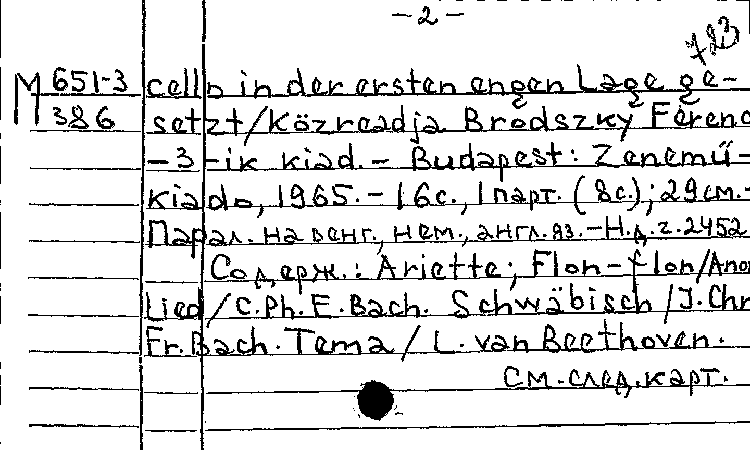 -2-
723
M 651-3 cello in der ersten engen Lage ge-
386 setzt/Közreadja Brodszky Ferenc
-3-ik kiad.- Budapest: Zenemű-
kiadó, 1965.-16с., 1парт. (8с.); 29см.-
Парал. на венг., нем., англ.яз.-Н.д.z.2452
Содерж.: Ariette; Flon-flon/Anon
Lied/C.Ph.E.Bach. Schwäbisch/J.Chr
Fr.Bach. Tema/L.van Beethoven.
см.след.карт.